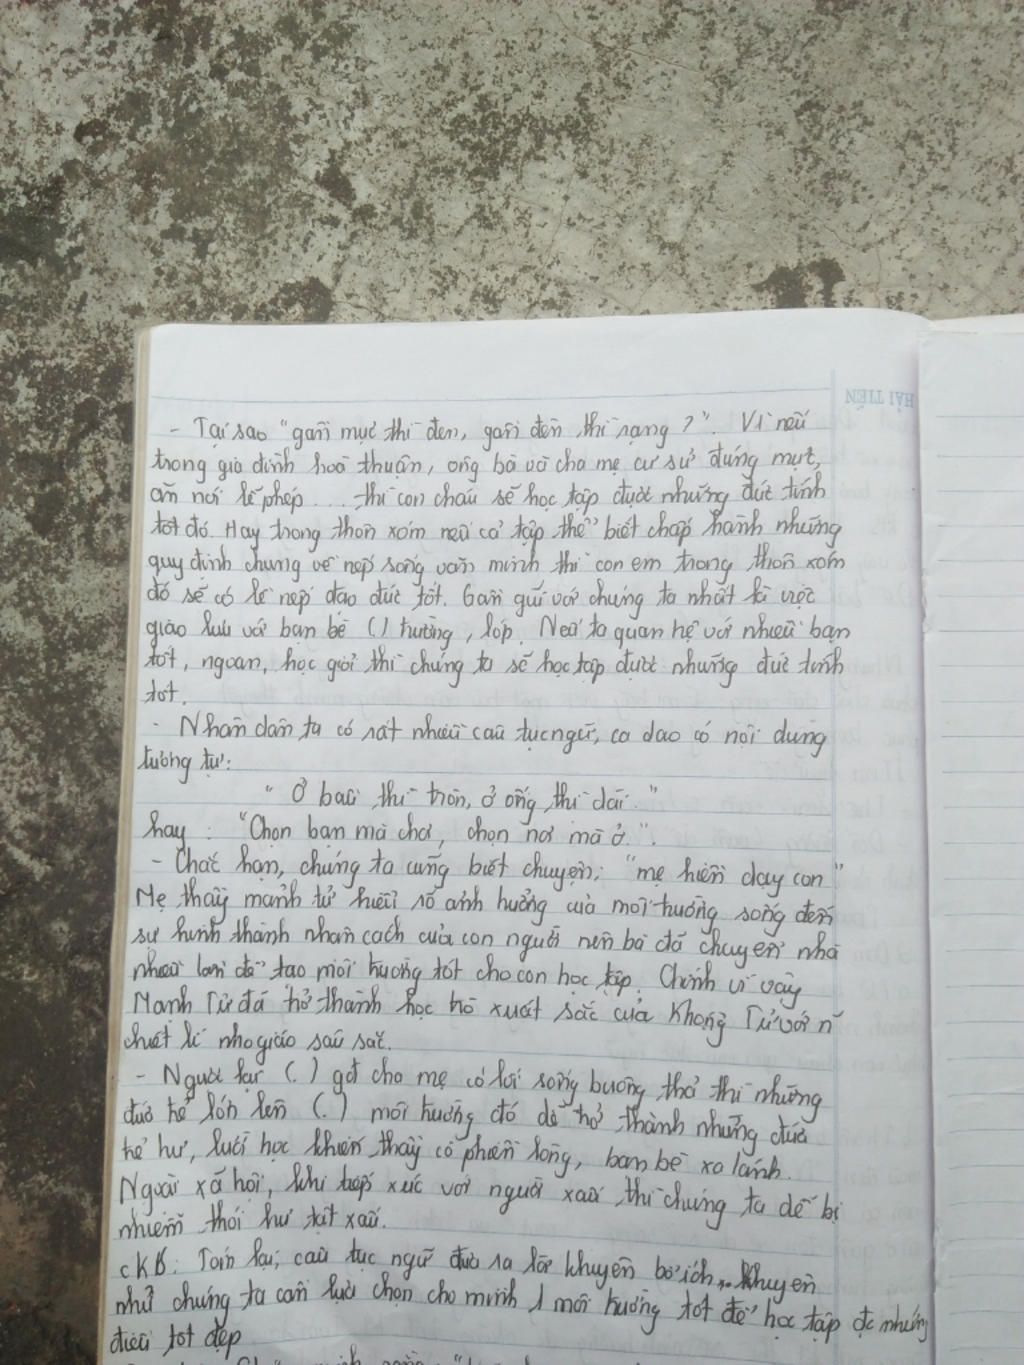 HẢI TIẾN
- Tại sao "gần mực thì đen, gần đèn thì rạng ?". Vì nếu
trong gia đình hoà thuận, ông bà và cha mẹ cư sử đúng mực,
ăn nói lễ phép .... thì con cháu sẽ học tập được những đức tính
tốt đó. Hay trong thôn xóm nếu cả tập thể biết chấp hành những
quy định chung về nếp sống văn minh thì con em trong thôn xóm
đó sẽ có lề nếp đạo đức tốt. Gần gũi với chúng ta nhất là việc
giao lưu với bạn bè ( ) trường, lớp. Nếu ta quan hệ với nhiều bạn
tốt, ngoan, học giỏi thì chúng ta sẽ học tập được những đức tính
tốt.
- Nhân dân ta có rất nhiều câu tục ngữ, ca dao có nội dung
tương tự:
" Ở bầu thì tròn, ở ống thì dài. "
hay : "Chọn bạn mà chơi, chọn nơi mà ở.".
- Chắc hẳn, chúng ta cũng biết chuyện: "mẹ hiền dạy con"
Mẹ thầy mạnh tử hiểu rõ ảnh hưởng của môi trường sống đến
sự hình thành nhân cách của con người nên bà đã chuyển nhà
nhiều lần để tạo môi trường tốt cho con học tập. Chính vì vậy
Mạnh Tử đã trở thành học trò xuất sắc của Khổng Tử với n~
chiết lí nho giáo sâu sắc.
- Ngược lại (.) gđ cha mẹ có lối sống buông thả thì những
đứa trẻ lớn lên (.) môi trường đó dễ trở thành những đứa
trẻ hư, lười học khiến thầy cô phiền lòng, bạn bè xa lánh.
Ngoài xã hội, khi tiếp xúc với người xấu thì chúng ta dễ bị
nhiễm thói hư tật xấu.
Tóm lại, câu tục ngữ đưa ra lời khuyên bổ ích, khuyên
nhủ chúng ta cần lựa chọn cho mình 1 môi trường tốt để học tập đc những
điều tốt đẹp